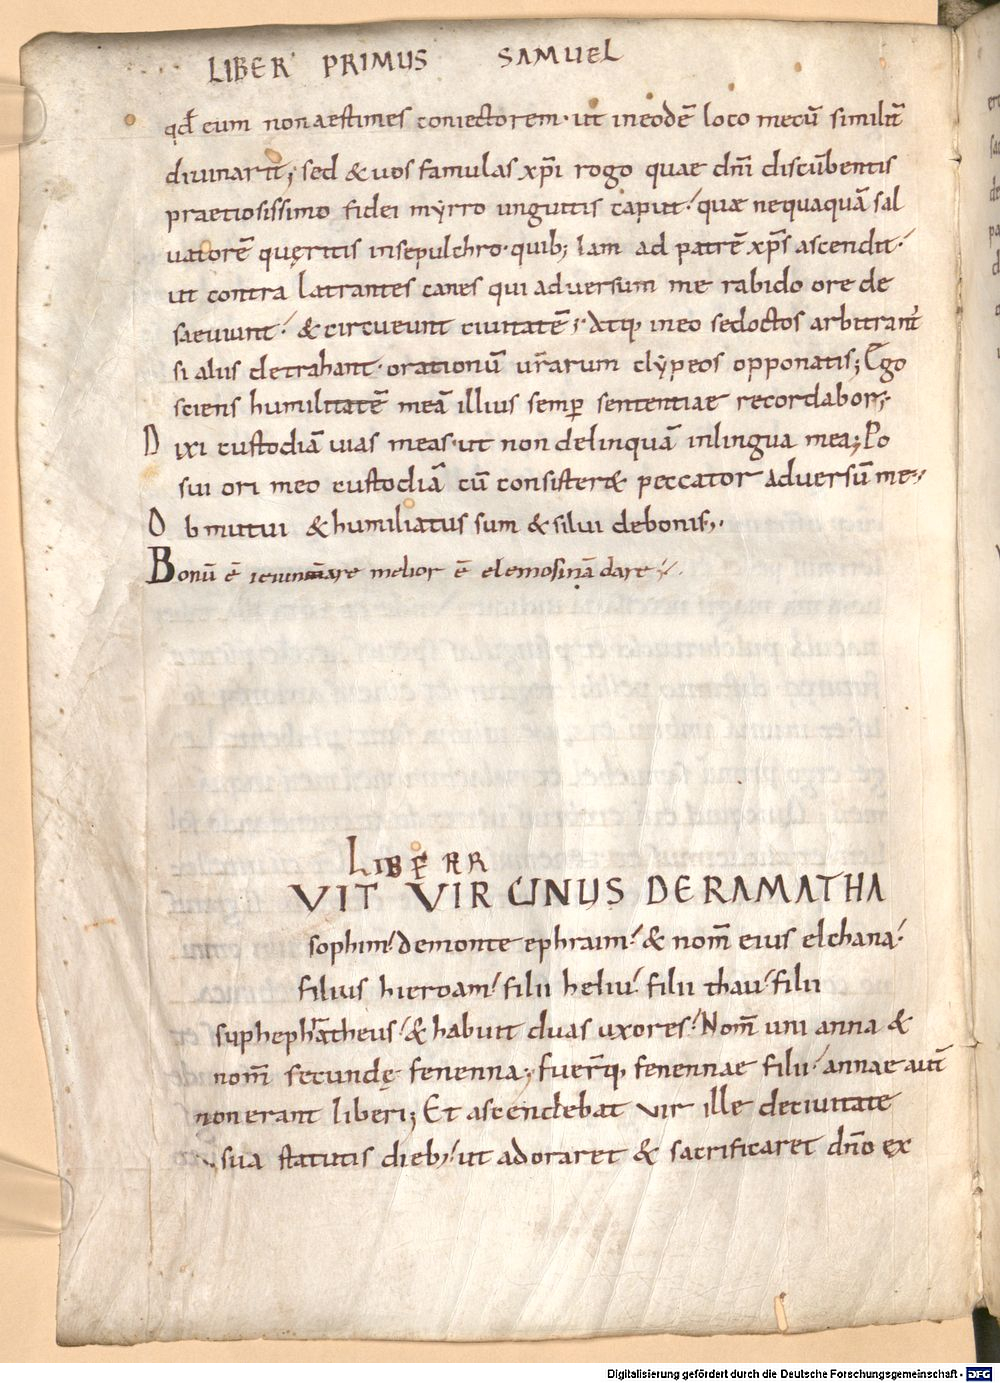 LIBER PRIMUS SAMUEL
qd̄ cum non aestimes coniectorem· ut ineodē loco mecū similit̄
diuinarit; sed & uos famulas xp̄i rogo quae dn̄i discūbentis
praetiosissimo fidei myrro unguitis caput· quæ nequaquā sal
uatorē quęritis insepulchro· quib; iam ad patrē xp̄s ascendit·
ut contra latrantes canes qui aduersum me rabido ore de
saeuiunt· & circueunt ciuitatē; Atq; ineo sedoctos arbitrant̄
si aliis detrahant· orationū ur̄arum clypeos opponatis; Ego
sciens humilitatē meā illius semp̄ sententiae recordabor;
Dixi custodiā uias meas· ut non delinquā inlingua mea; Po
sui ori meo custodiā cū consister& peccator aduersū me·
Obmutui & humiliatus sum & silui debonis·
Bonū ē ieiunare melior ē elemosinā dare
LIBER R
VIT VIR UNUS DERAMATHA
sophim· demonte ephraim· & nom̄ eius elchana·
filius hieroam· filii heliu· filii thau· filii
suphephratheus· & habuit duas uxores· Nom̄ uni anna &
nom̄ secundę fenenna; fuer̄q; fenennae filii· annae aut̄
non erant liberi; Et ascendebat vir ille deciuitate
sua statutis dieb; ut adoraret & sacrificaret dn̄o ex
Digitalisierung gefördert durch die Deutsche Forschungsgemeinschaft - DFG